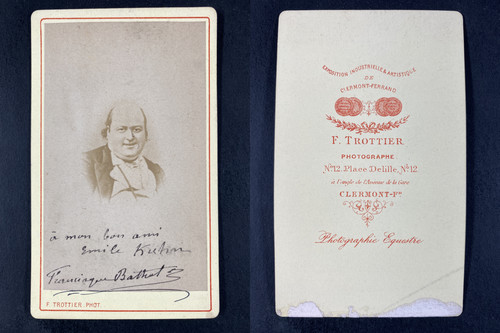 à mon bon ami
Emile Kuhn
F. TROTTIER PHOT.
EXPOSITION INDUSTRIELLE & ARTISTIQUE
DE
CLERMONT-FERRAND
F. TROTTIER
PHOTOGRAPHE
No. 12. Place Delille, No. 12
à l'angle de l'Avenue de la Gare
CLERMONT-Fd.
Photographie Equestre